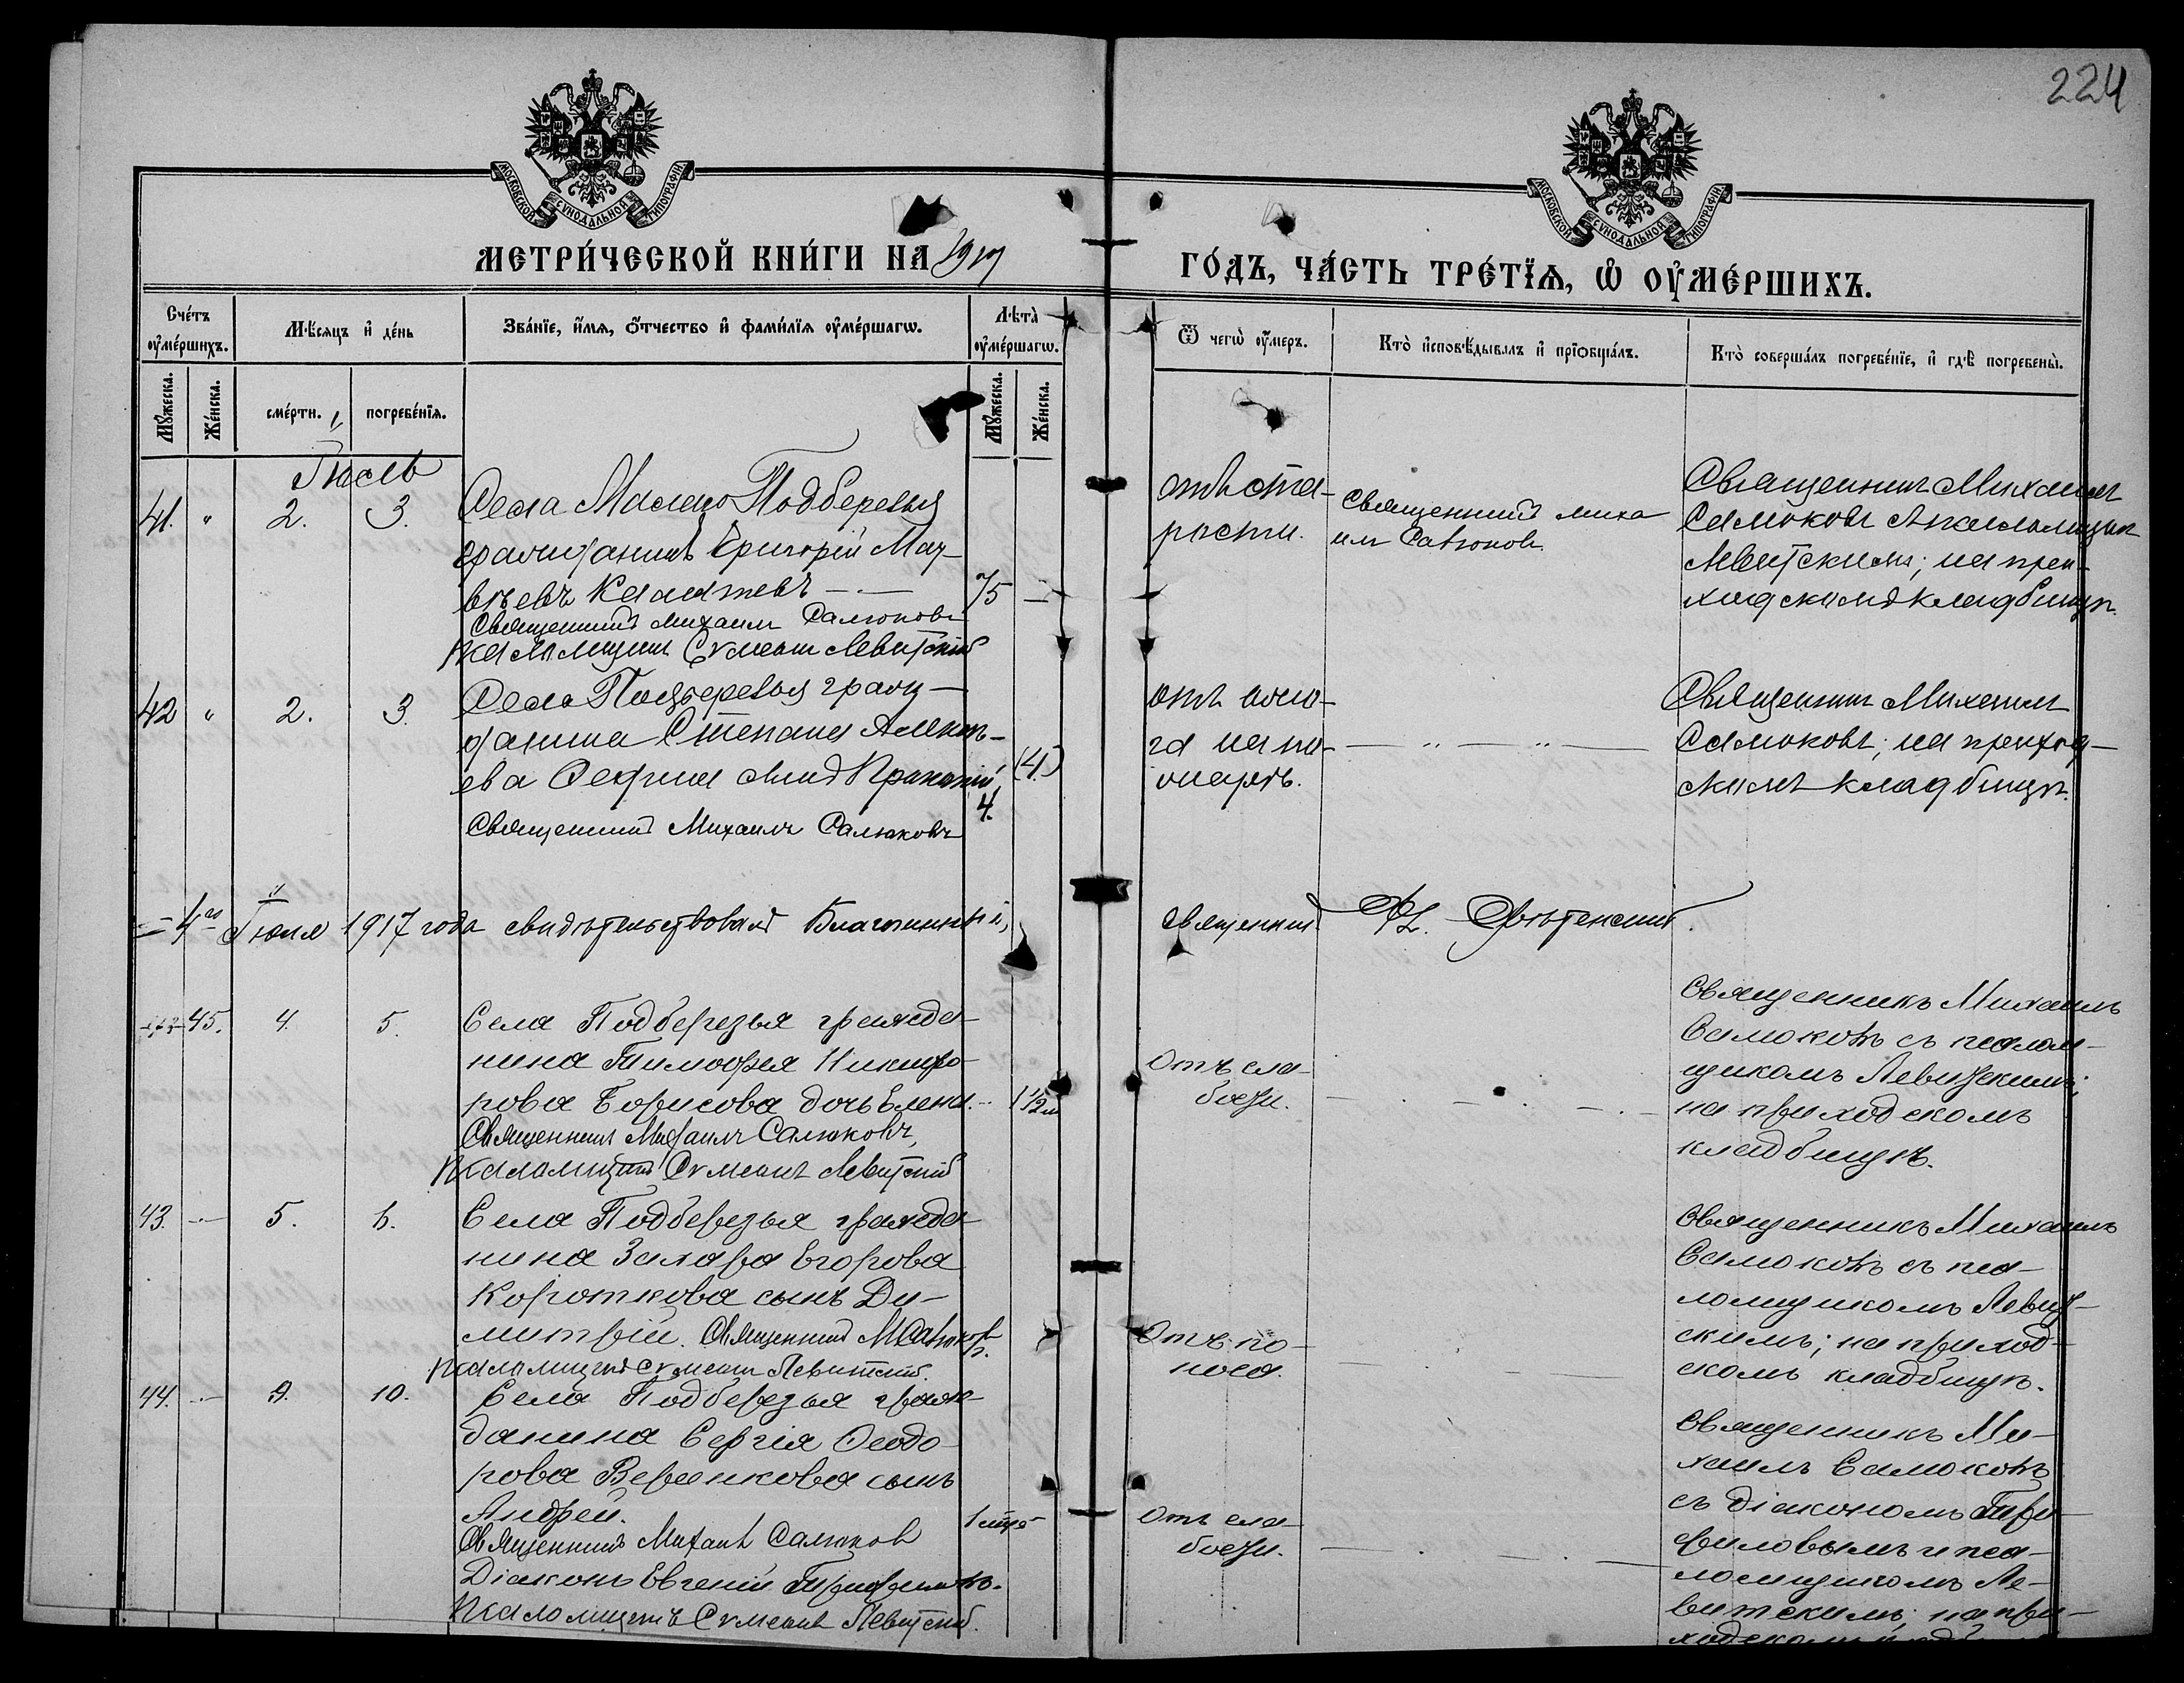 224
МОСКОВСКОЙ СѴНОДАЛЬНОЙ ТИПОГРАФІИ
МОСКОВСКОЙ СѴНОДАЛЬНОЙ ТИПОГРАФІИ
МЕТРИ́ЧЕСКОЙ КНИ́ГИ НА 1917
ГО́ДЪ, ЧА́СТЬ ТРЕ́ТЇѦ, Ѡ҆ ОУ҆МЕ́РШИХЪ.
Сче́тъ оу҆ме́ршихъ.
Мѣ́сяцъ и҆ де́нь
Зва́нїе, и҆́мѧ, ѻ҆́тчество и҆ фами́лїѧ оу҆ме́ршагѡ.
Лѣ́та оу҆ме́ршагѡ.
Ѿ чегѡ̀ оу҆́меръ.
Кто̀ и҆сповѣ́дывалъ и҆ прїѻбща́лъ.
Кто̀ соверша́лъ погребе́нїе, и҆ гдѣ̀ погребены̀.
Мꙋ́жеска.
Же́нска.
сме́рти.
погребе́нїѧ.
Мꙋ́жеска.
Же́нска.
Іюль
41. " 2. 3.
Села Подберезья
гражданинъ Григорій Мат-
вѣевъ
75 —
Священникъ Михаилъ Самоковъ
Псаломщикъ Сѵмеонъ Левитскій
отъ ста-
рости.
Священникъ Миха
илъ Самоковъ.
Священникъ Михаилъ
Самоковъ
Левитскимъ; на при-
ходскомъ кладбищѣ.
42 " 2. 3.
Села Подберезья граж-
данина Стефана Алексѣ-
ева сынъ
(4.)
4.
Священникъ Михаилъ Самоковъ
— " — " —
Священникъ Михаилъ
Самоковъ; на приход-
скомъ кладбищѣ.
4го Іюля 1917 года свидѣтельствовалъ Благочинный,
Священникъ
Срѣтенскій.
45. 4. 5.
Села Подберезья гражда-
нина Тимоѳея Никифо-
рова Борисова дочь Елена.
1 1/2 м
Священникъ Михаилъ Самоковъ,
Псаломщикъ Сѵмеонъ Левитскій
Отъ сла-
бости.
Священникъ Михаилъ
Самоковъ съ псалом-
щикомъ Левитскимъ;
на приходскомъ
кладбищѣ.
43. — 5. 6.
Села Подберезья гражда-
нина Захара Егорова
Короткова сынъ Ди-
митрій. Священникъ М. Самоковъ.
Псаломщикъ Сѵмеонъ Левитскій.
Отъ по-
носа.
Священникъ Михаилъ
Самоковъ съ пса-
ломщикомъ Левит-
скимъ; на приход-
скомъ кладбищѣ.
44. — 9. 10.
Села Подберезья граж-
данина Сергія Ѳеодо-
рова сынъ
Андрей.
Священникъ Михаилъ Самоковъ
Діаконъ Евгеній Трифиловъ.
Псаломщикъ Сѵмеонъ Левитскій.
Отъ сла-
бости.
Священникъ Ми-
хаилъ Самоковъ
съ діакономъ Три-
филовымъ и пса-
ломщикомъ Ле-
витскимъ; на при-